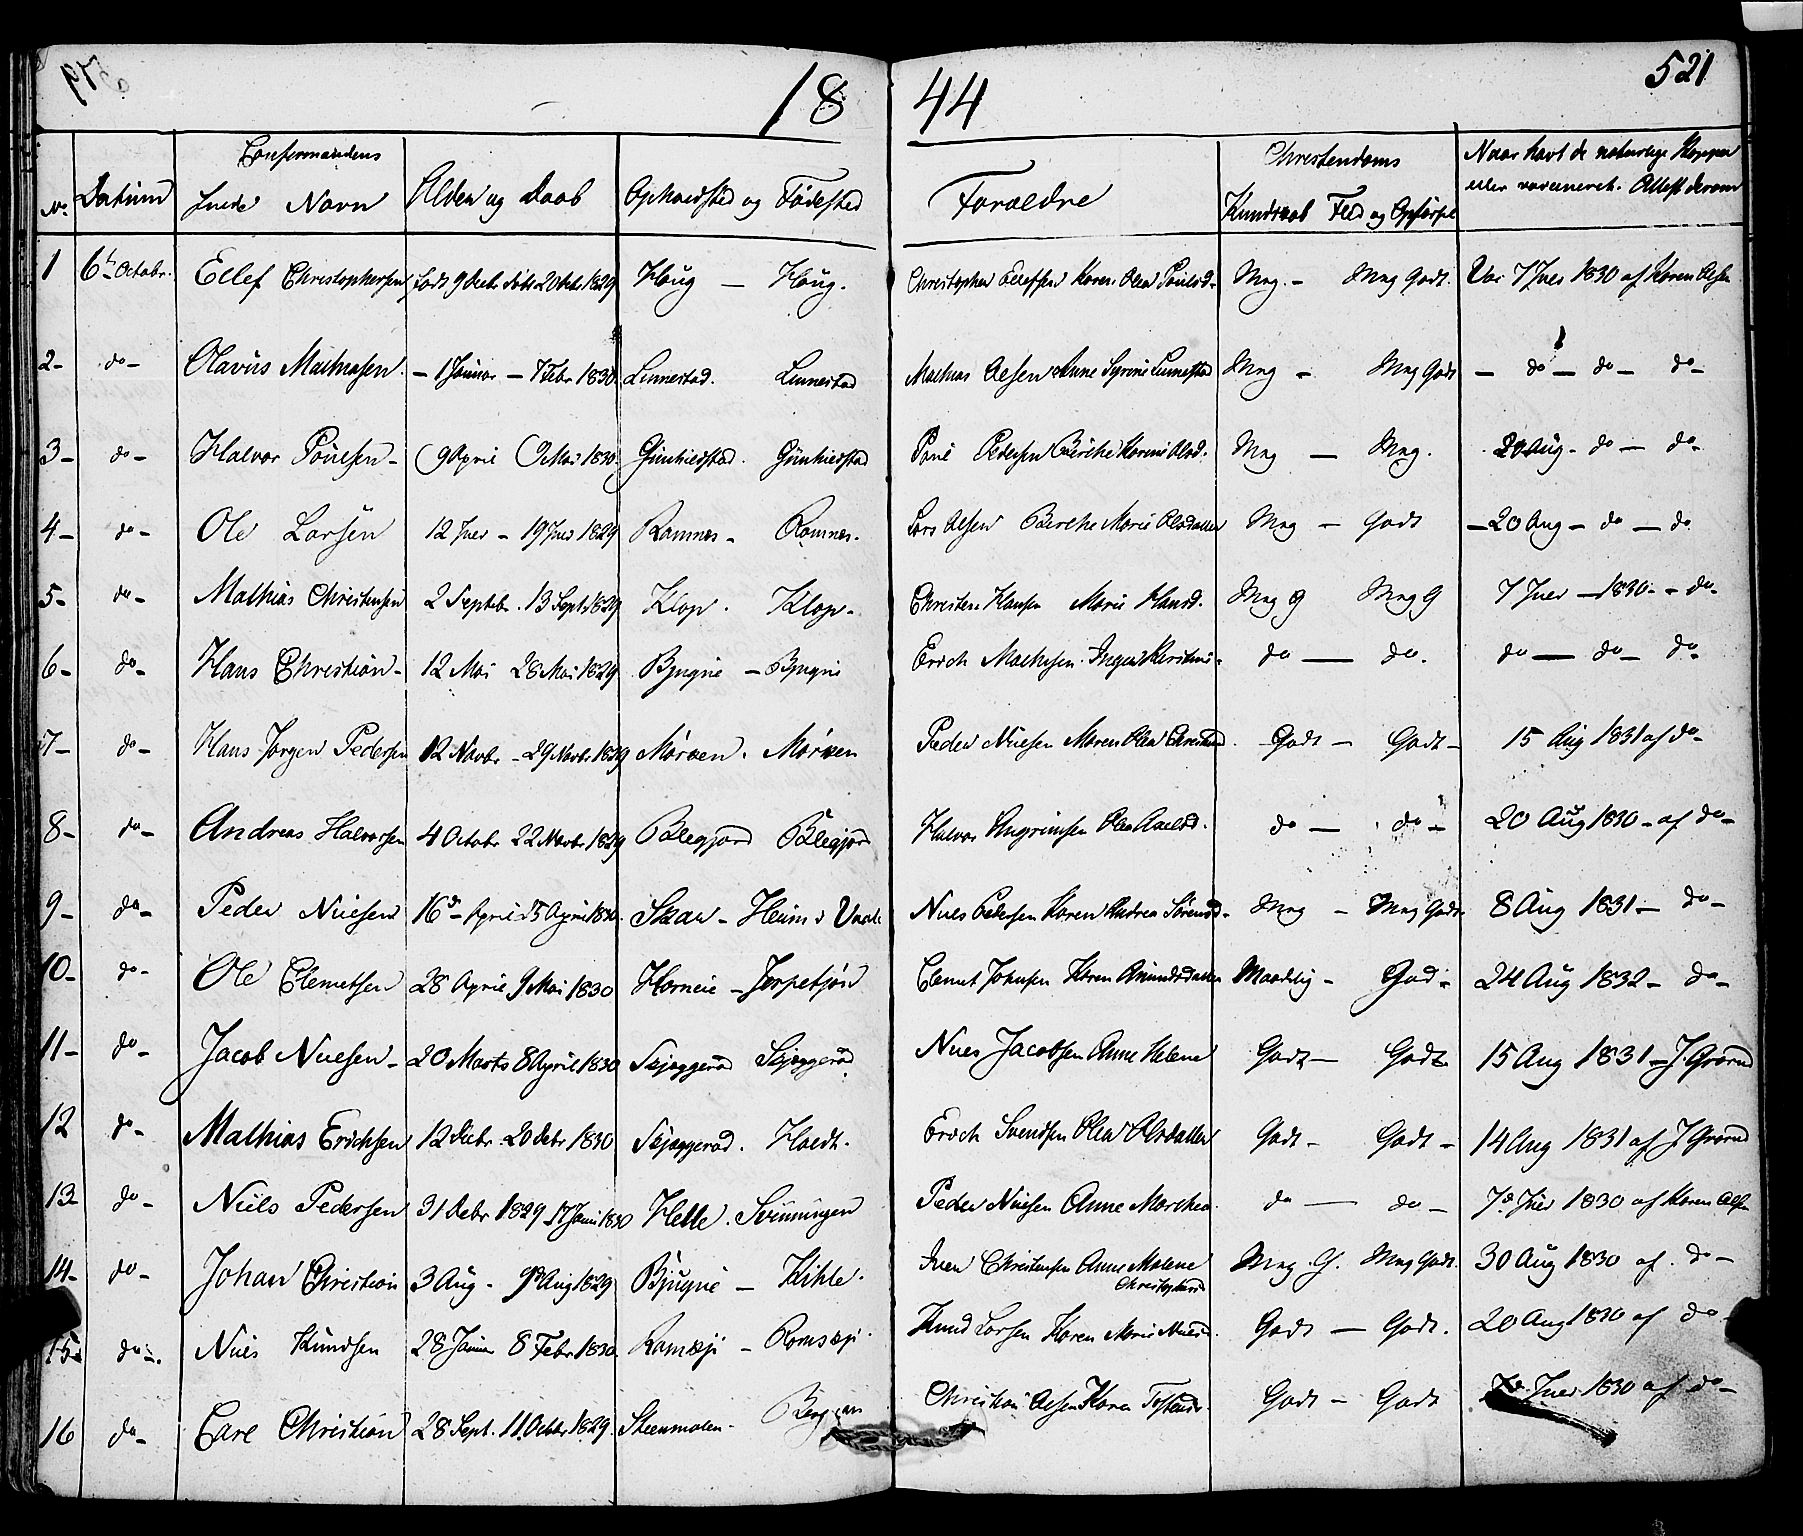 18 44 521
No Datum Confirmandens fulde Navn Alder og Daab Opholdsted og Fødested Forældre Christendoms Kundskab Flid og Opførsel Naar havt de naturlige Kopper eller vaccineret. Attest derom
1 6te Octobr. Ellef Christophersen født 9 døbt 20 1829 Houg — Houg. Christopher Ellefsen Karen Olea Poulsd. Mng. - Mng Godt. Vac 7 Juli 1830 af Karen Olsen
2- do- Olavus Mathiasen. - 1 Januar - 7 Febr 1830 Linnestad. Linnestad Mathias Olsen Anne Linnestad Mng - Mng Godt - do - do - do-
3- do- Halvor Poulsen- 9 April Mai 1830 Gunhildstad. Gunhildstad Poul Pedersen Berthe Karine Olsd. Mng — Mng. 20 Aug- do - do-
4- do- Ole Larsen 12 Juli - 19 Juli 1829 Ramnes- Ramnes. Lars Olsen Berthe Marie Olsdatter Mng - Godt -20 Aug - do - do
5- do- Mathias Christensen 2 Septebr. 13 Sept 1829 Klop. Klop- Christen Hansen Marie Hansd. Mng G Mng G 7 Juli - 1830 - - do-
6- do- Hans Christian- 12 Mai 28 Mai 1829 Bjugne - Bjugne Erich Mathisen. Inger Kirstine- do — do. do — do - do-
7- do- Hans Jørgen Pedersen 12 Novbr - 29 Novbr 1829 Mørken. Mørken Peder Nilsen Maren Olea Godt - Godt- 15 Aug 1831 af do-
8- do- Andreas Halvorsen 4 Octobr 22 Novbr 1829 Blegjord Blegjord Halvor Angrimsen Olea do - do- 20 Aug 1830 - af do-
9- do- Peder Nilsen 16de April 25 April 1830. Skau - Heim i Vaale Niels Pedersen Karen Andrea Sørensd- Mng - Mng Godt 8 Aug 1831 - do-
10- do- Ole Clemetsen 28 April 9 Mai 1830 Horneie - Clemet Johnsen Karen Amundsdatter Maadelig - God- 24 Aug 1832 - do-
11- do- Jacob Nilsen- 20 Marts 8 April 1830 Skjæggerød Skjæggerød Niels Jacobsen Anne Helene Godt - Godt 15 Aug 1831 - J Grorud
12 do- Mathias Erichsen 12 Decbr 20 1830 Skjæggerød. Holdt. Erich Svendsen Olea Olsdatter Godt - Godt- 14 Aug 1831 af J Grorud
13- do- Niels Pedersen 31 Debr 1829 17 Janu 1830 Helle. Svinningen Peder Nilsen Anne Marthea do — do- 7de Juli 1830 af Karen Olsen
14- do- Johan Christian 3 Aug - 9 Aug 1829 Bjugne - Kihle. Iver Christensen Anne Malene Christophersd Mng G. Mng Godt. 30 Aug 1830 af. do-
15- do-. Niels Knudsen 28 Januar 8 Febr 1830 Ramsøji - Ramsøji. Knud Larsen Karen Marie Nielsd. Godt - Godt. 20 Aug 1830 af do
16 do- Carl Christian 28 Sept. 11 Octobr 1829. Steenmolen- Christian Olsen Karen Godt - Godt 7de Juli 1830 af do-